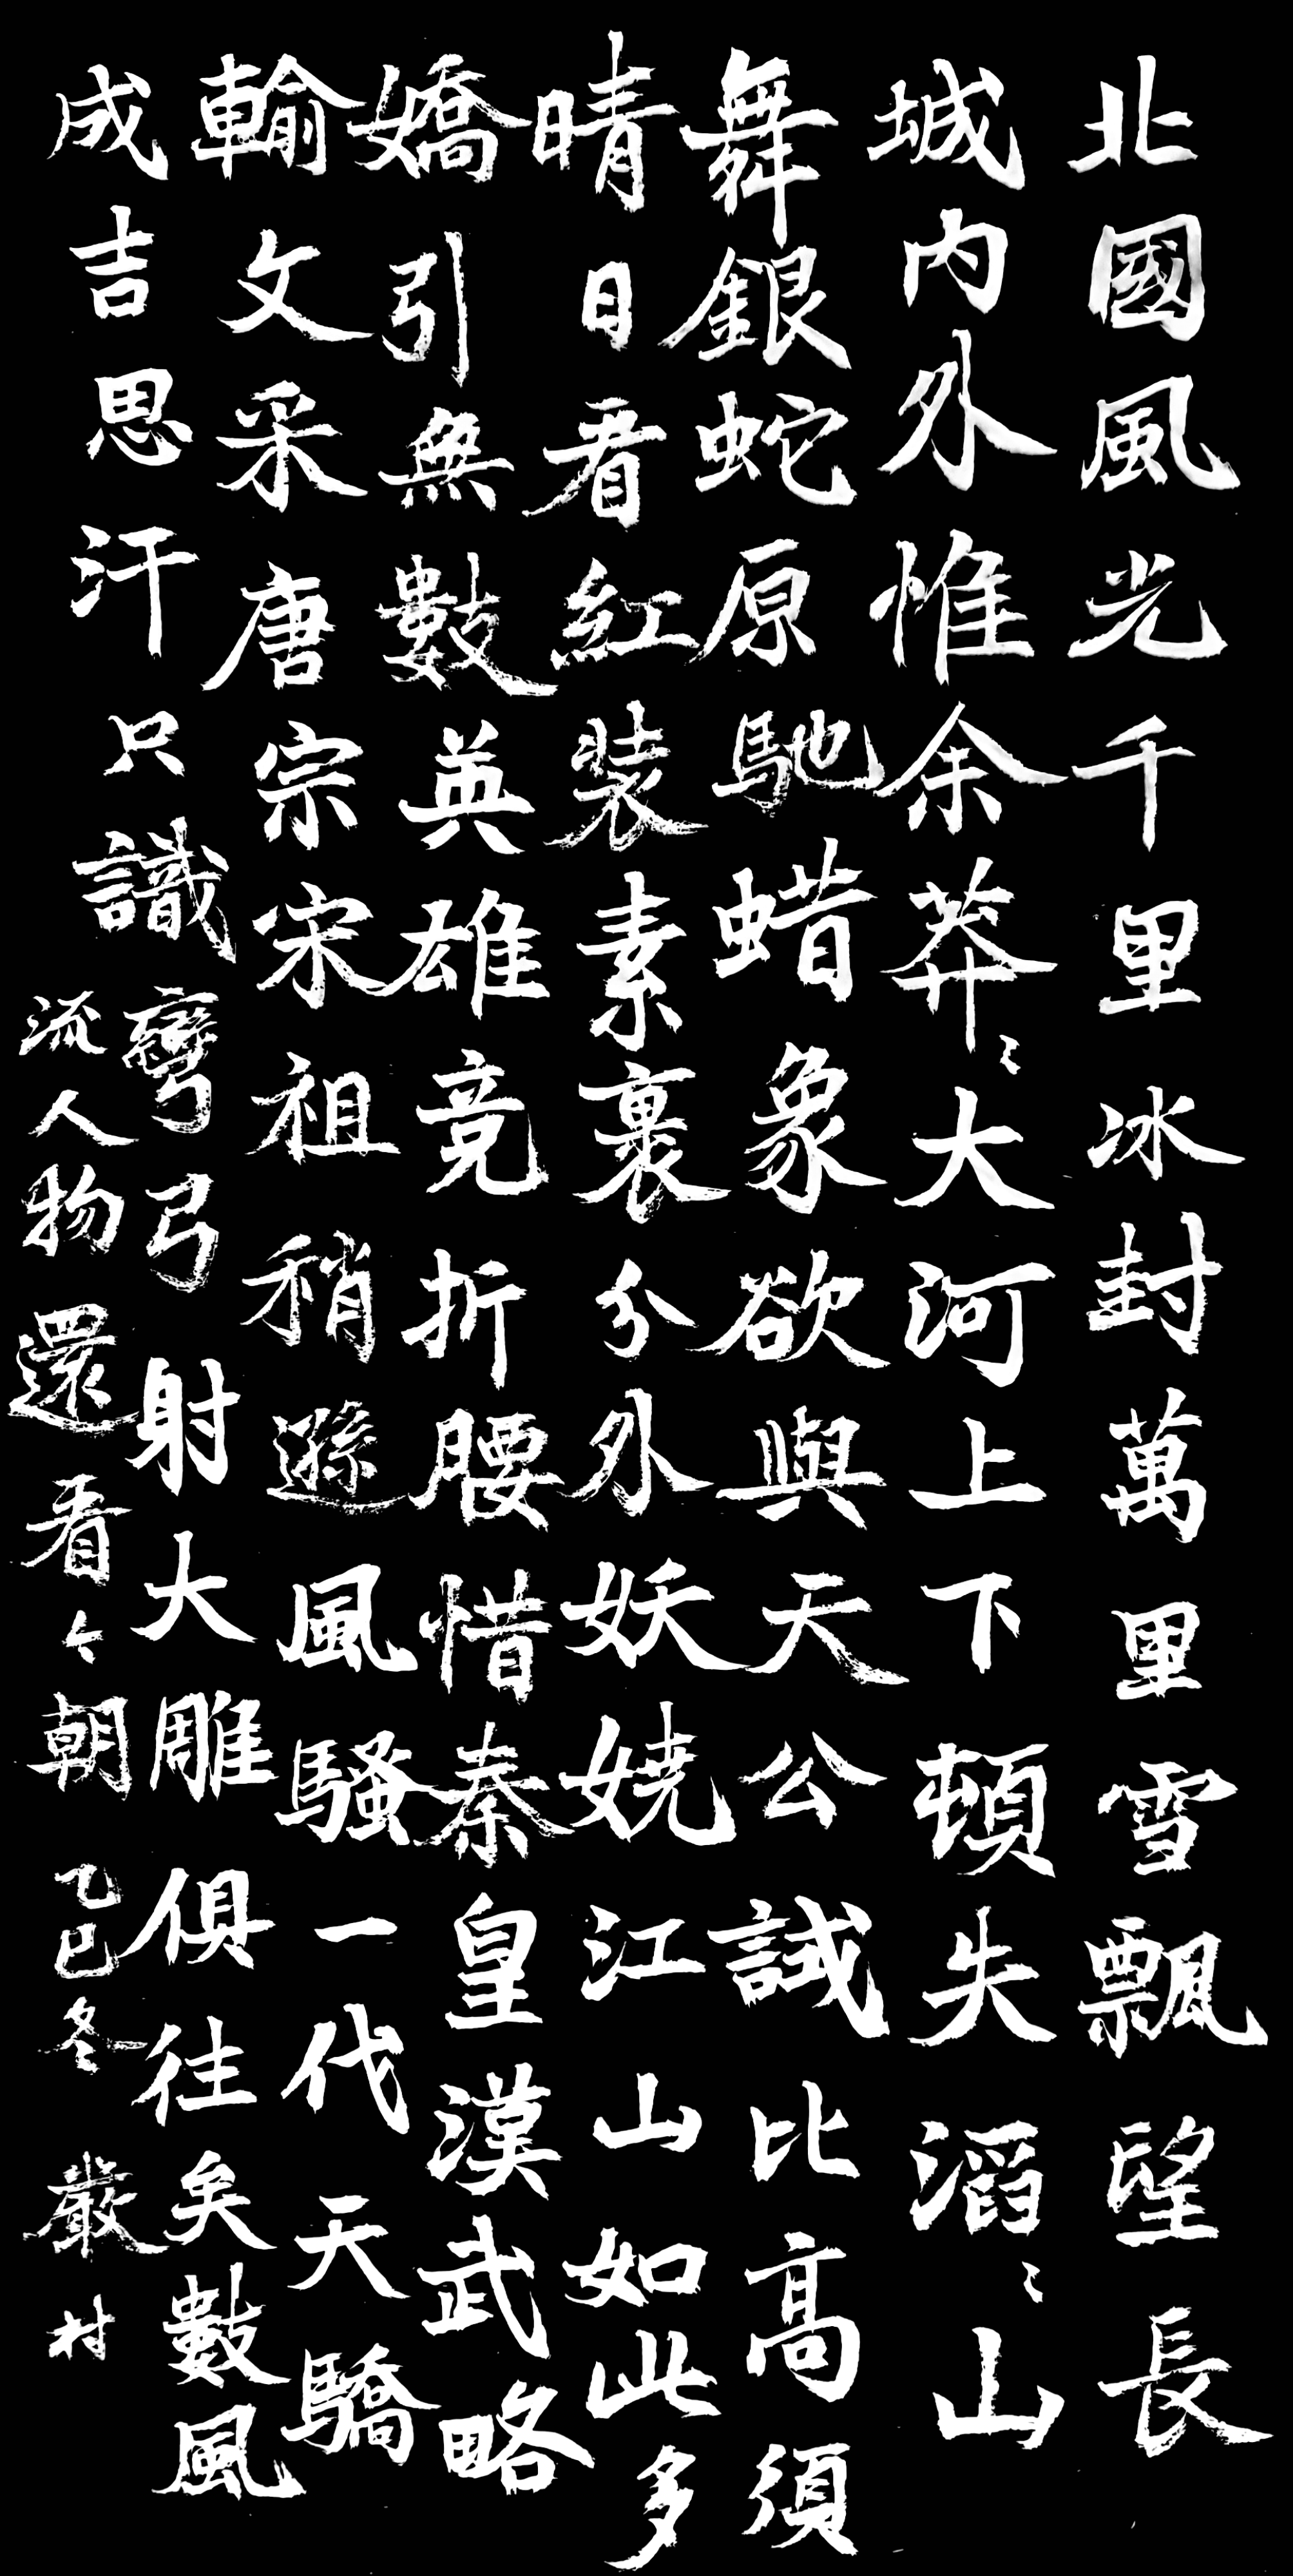 北國風光千里冰封萬里雪飄望長
城内外惟余莽〻大河上下頓失滔〻山
舞銀蛇原馳蜡象欲與天公試比高須
晴日看紅装素裹分外妖娆江山如此多
嬌引無數英雄竞折腰惜秦皇漢武略
輸文采唐宗宋祖稍遜風騷一代天驕
成吉思汗只識彎弓射大雕俱往矣數風
流人物還看今朝 乙巳冬 嚴村